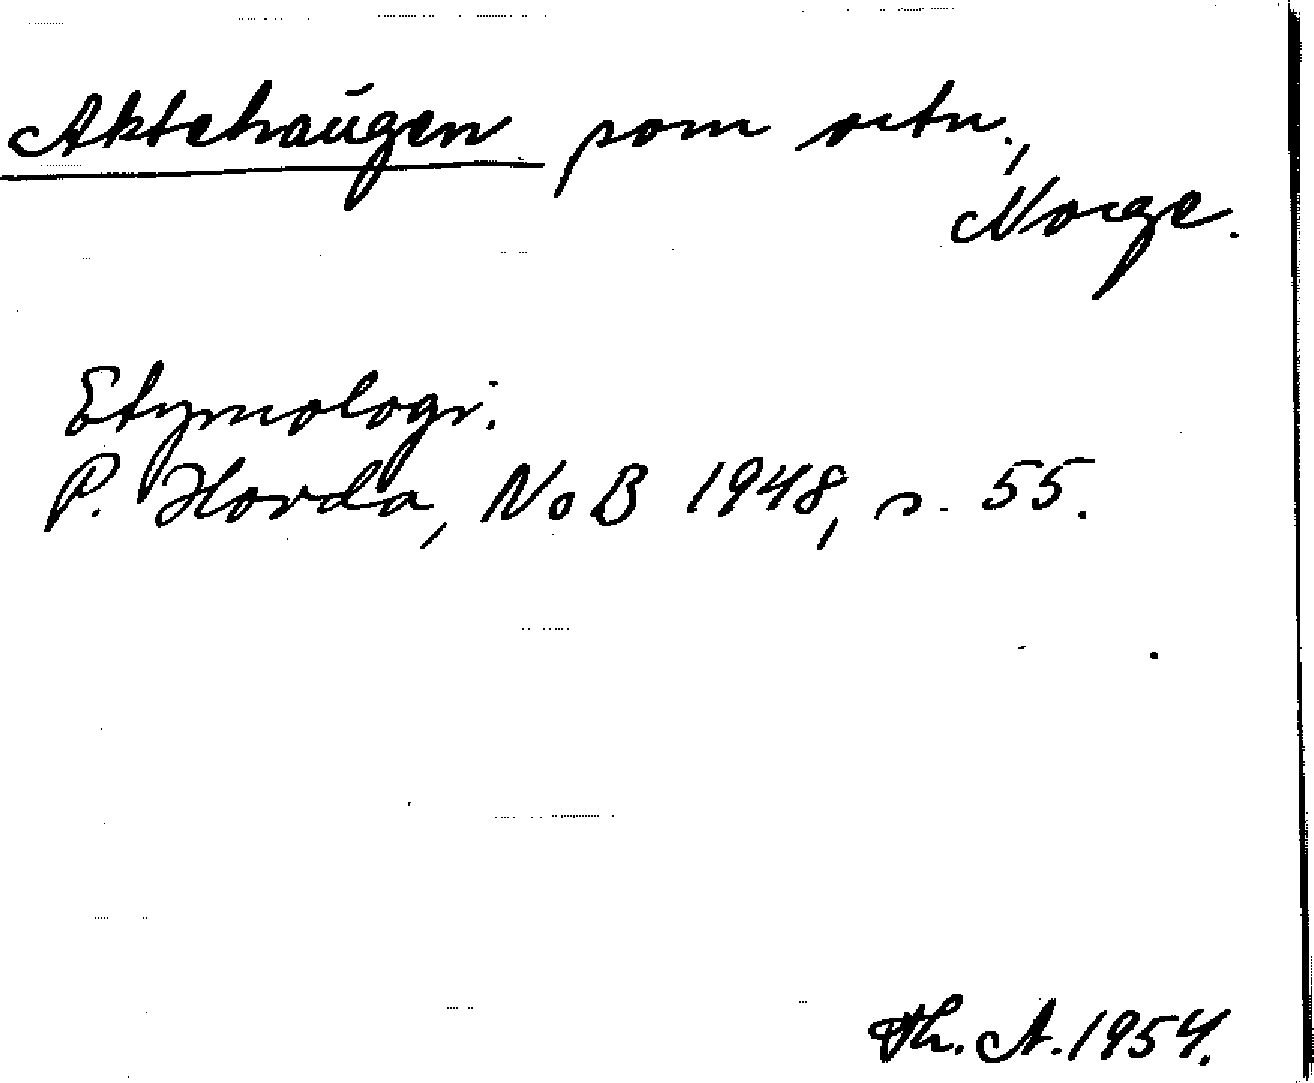 Aktehaugen som ortn.,
Norge.
Etymologi:
P. Hovda, NoB 1948, s. 55.
Th. A. 1954.